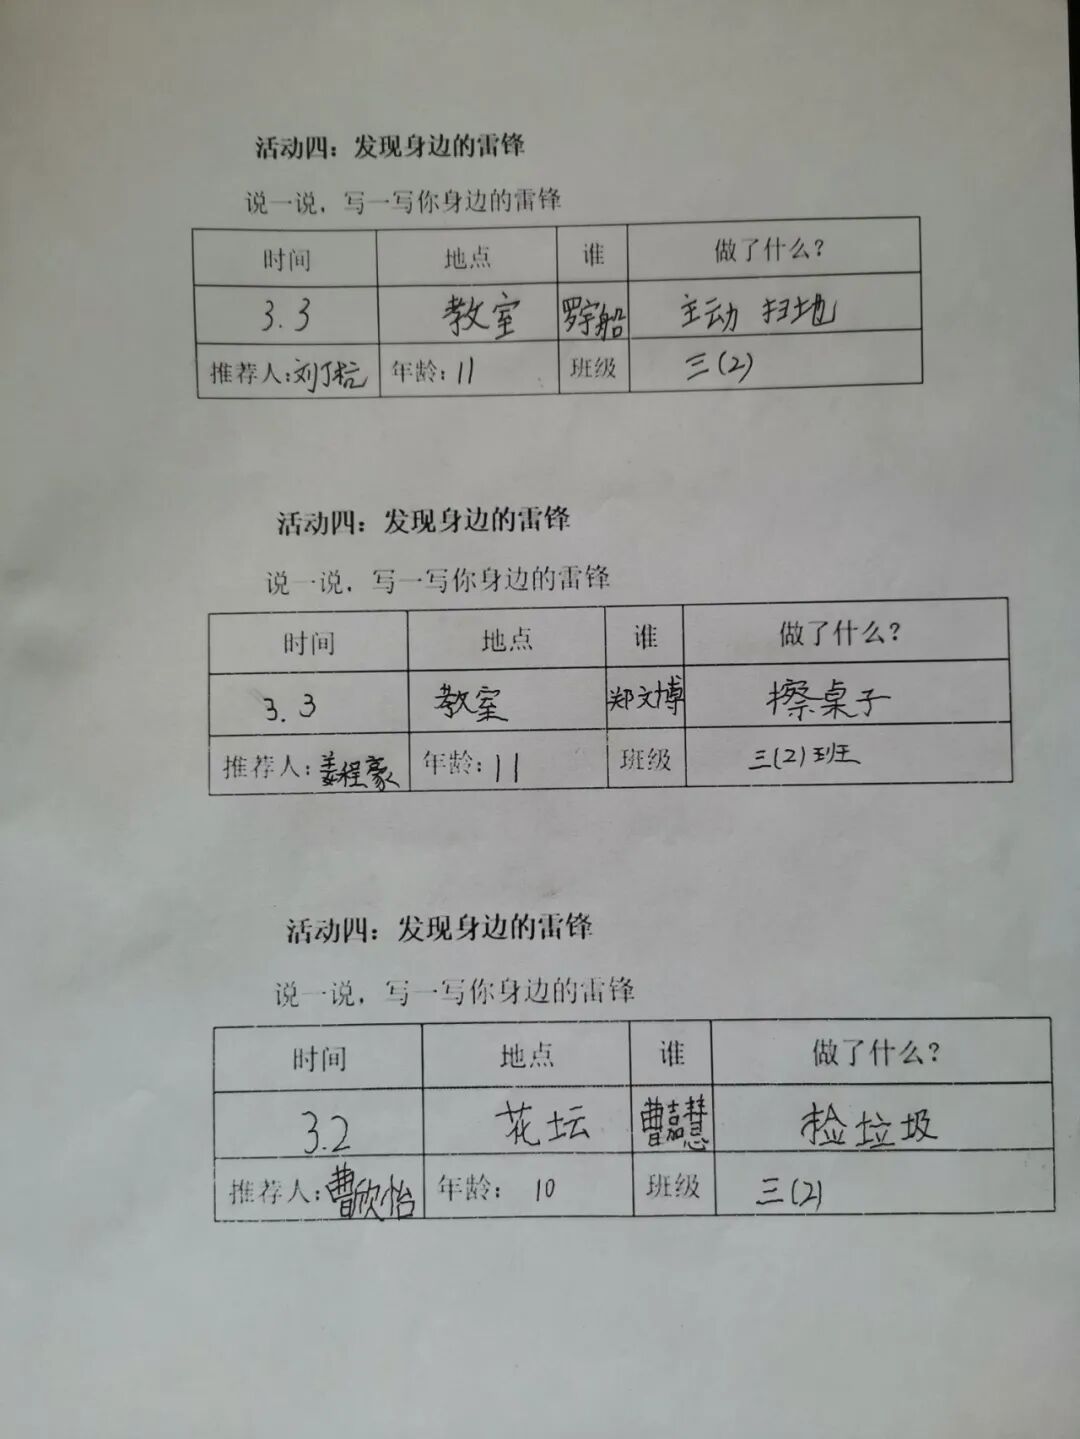 活动四：发现身边的雷锋
说一说，写一写你身边的雷锋
时间 地点 谁 做了什么？
3.3 教室 罗宇船 主动 扫地
推荐人：刘丁杭 年龄：11 班级 三(2)
活动四：发现身边的雷锋
说一说，写一写你身边的雷锋
时间 地点 谁 做了什么？
3.3 教室 郑文博 擦桌子
推荐人：姜程豪 年龄：11 班级 三(2)班
活动四：发现身边的雷锋
说一说，写一写你身边的雷锋
时间 地点 谁 做了什么？
3.2 花坛 曹嘉慧 捡垃圾
推荐人：曹欣怡 年龄： 10 班级 三(2)